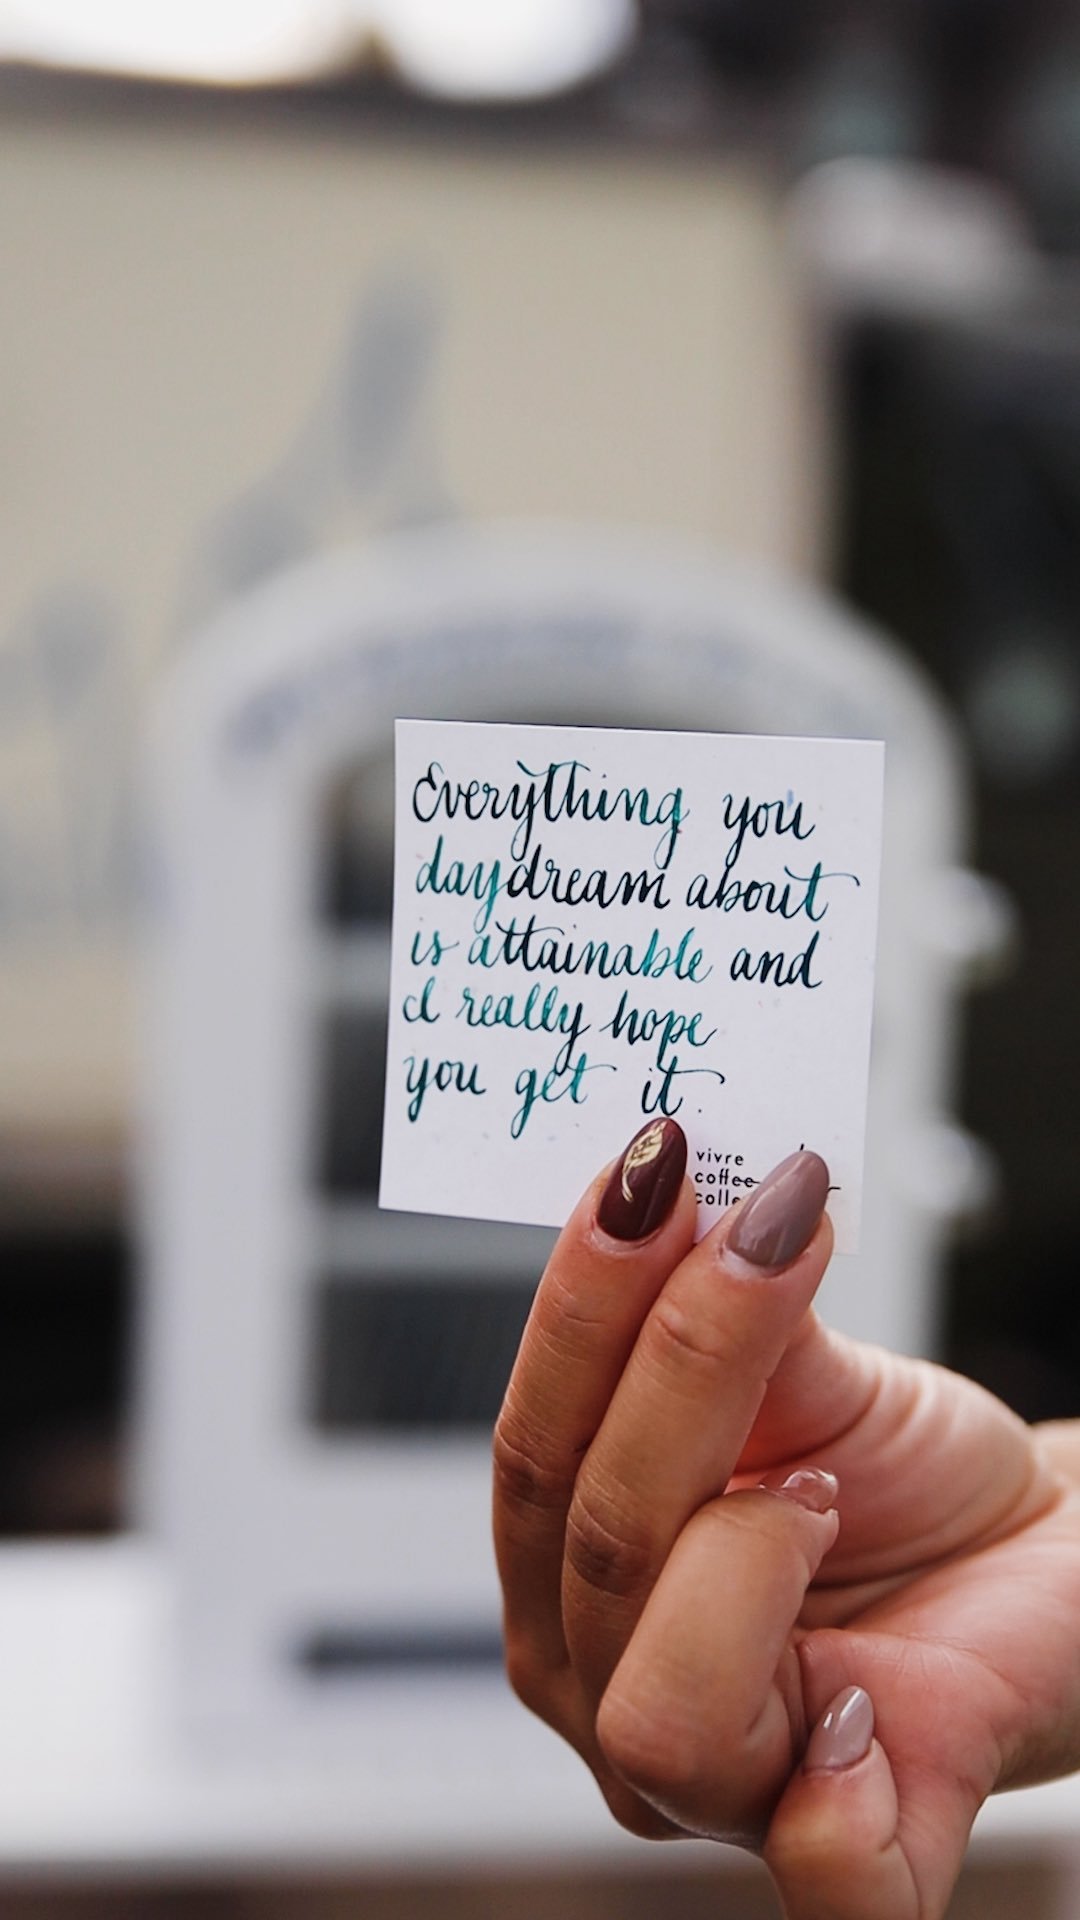 Everything you
daydream about
is attainable and
I really hope
you get it.
vivre
coffee